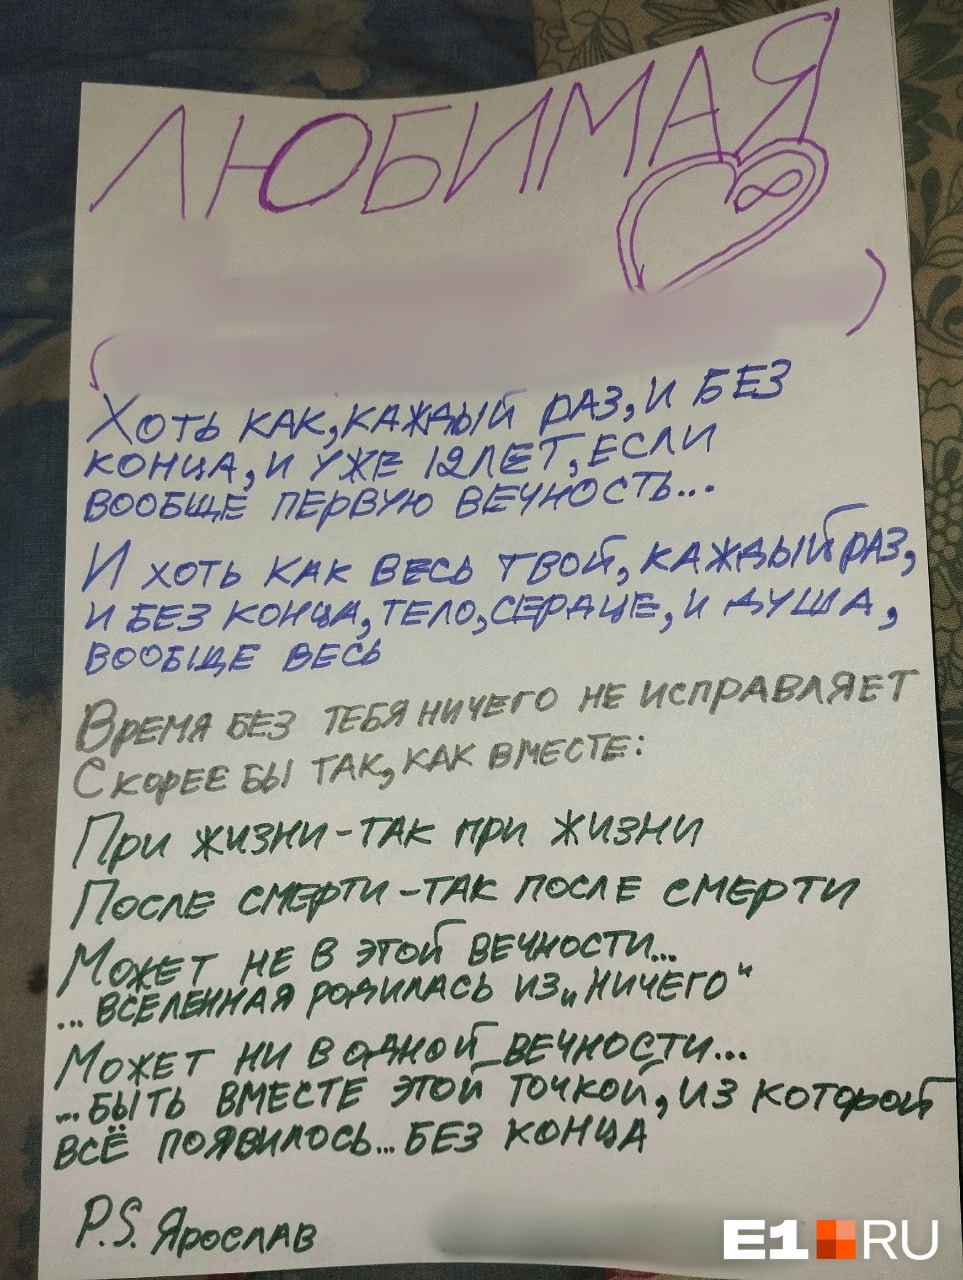 ЛЮБИМАЯ
Хоть как, каждый раз, и без
конца, и уже 12 лет, если
вообще первую вечность...
И хоть как весь твой, каждый раз,
и без конца, тело, сердце, и душа,
вообще весь
Время без тебя ничего не исправляет
Скорее бы так, как вместе:
При жизни - так при жизни
После смерти - так после смерти
Может не в этой вечности...
...вселенная родилась из „ничего“
Может ни в одной вечности...
...быть вместе этой точкой, из которой
всё появилось... без конца
P.S. Ярослав
E1.RU